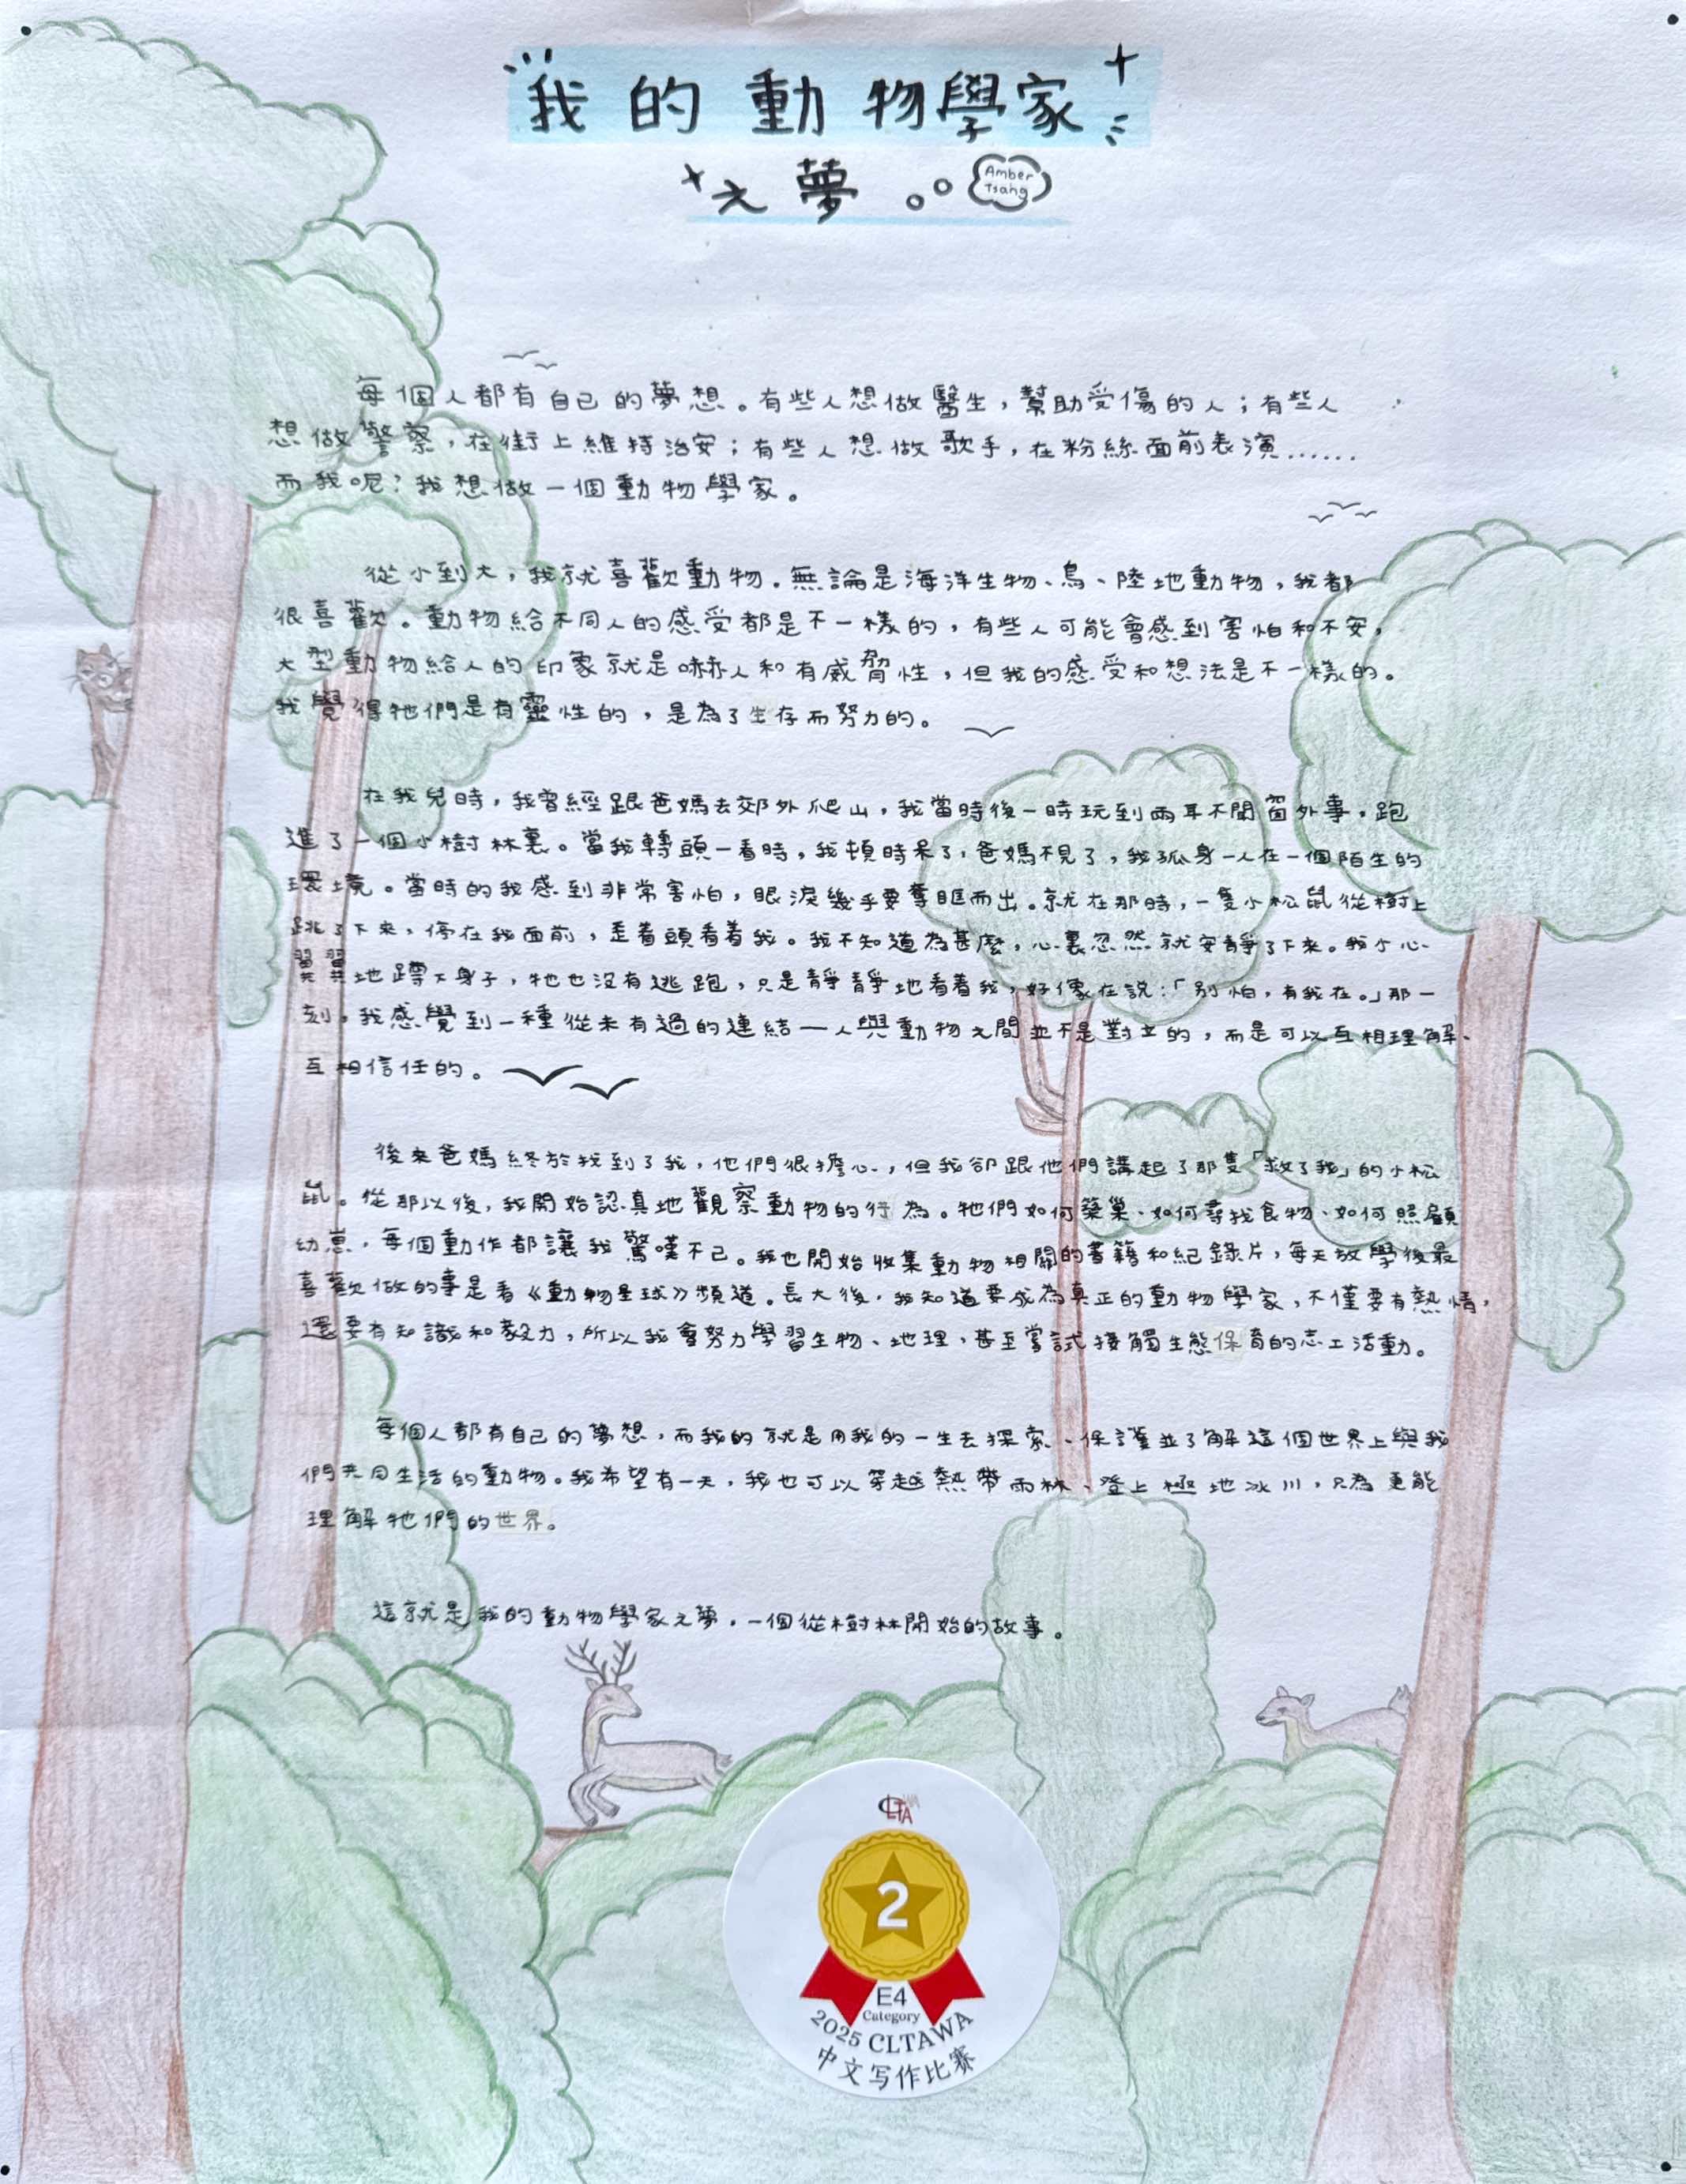 我的動物學家
之夢
Amber
Tsang
每個人都有自己的夢想。有些人想做醫生，幫助受傷的人；有些人
想做警察，在街上維持治安；有些人想做歌手，在粉絲面前表演……
而我呢？我想做一個動物學家。
從小到大，我就喜歡動物。無論是海洋生物、鳥、陸地動物，我都
很喜歡。動物給不同人的感受都是不一樣的，有些人可能會感到害怕和不安，
大型動物給人的印象就是嚇人和有威脅性，但我的感受和想法是不一樣的。
我覺得牠們是有靈性的，是為了生存而努力的。
在我兒時，我曾經跟爸媽去郊外爬山，我當時後一時玩到兩耳不聞窗外事，跑
進了一個小樹林裏。當我轉頭一看時，我頓時呆了，爸媽不見了，我孤身一人在一個陌生的
環境。當時的我感到非常害怕，眼淚幾乎要奪眶而出。就在那時，一隻小松鼠從樹上
跳了下來，停在我面前，歪着頭看着我。我不知道為甚麼，心裏忽然就安靜了下來。我小心
翼翼地蹲下身子，牠也沒有逃跑，只是靜靜地看着我，好像在說：「別怕，有我在。」那一
刻，我感覺到一種從未有過的連結—人與動物之間並不是對立的，而是可以互相理解、
互相信任的。
後來爸媽終於找到了我，他們很擔心，但我卻跟他們講起了那隻「救了我」的小松
鼠。從那以後，我開始認真地觀察動物的行為。牠們如何築巢、如何尋找食物、如何照顧
幼崽，每個動作都讓我驚嘆不已。我也開始收集動物相關的書籍和紀錄片，每天放學後最
喜歡做的事是看《動物星球》頻道。長大後，我知道要成為真正的動物學家，不僅要有熱情，
還要有知識和毅力，所以我會努力學習生物、地理，甚至嘗試接觸生態保育的志工活動。
每個人都有自己的夢想，而我的就是用我的一生去探索、保護並了解這個世界上與我
們共同生活的動物。我希望有一天，我也可以穿越熱帶雨林、登上極地冰川，只為更能
理解牠們的世界。
這就是我的動物學家之夢，一個從樹林開始的故事。
CLTAWA
2
E4
Category
2025 CLTAWA
中文写作比赛